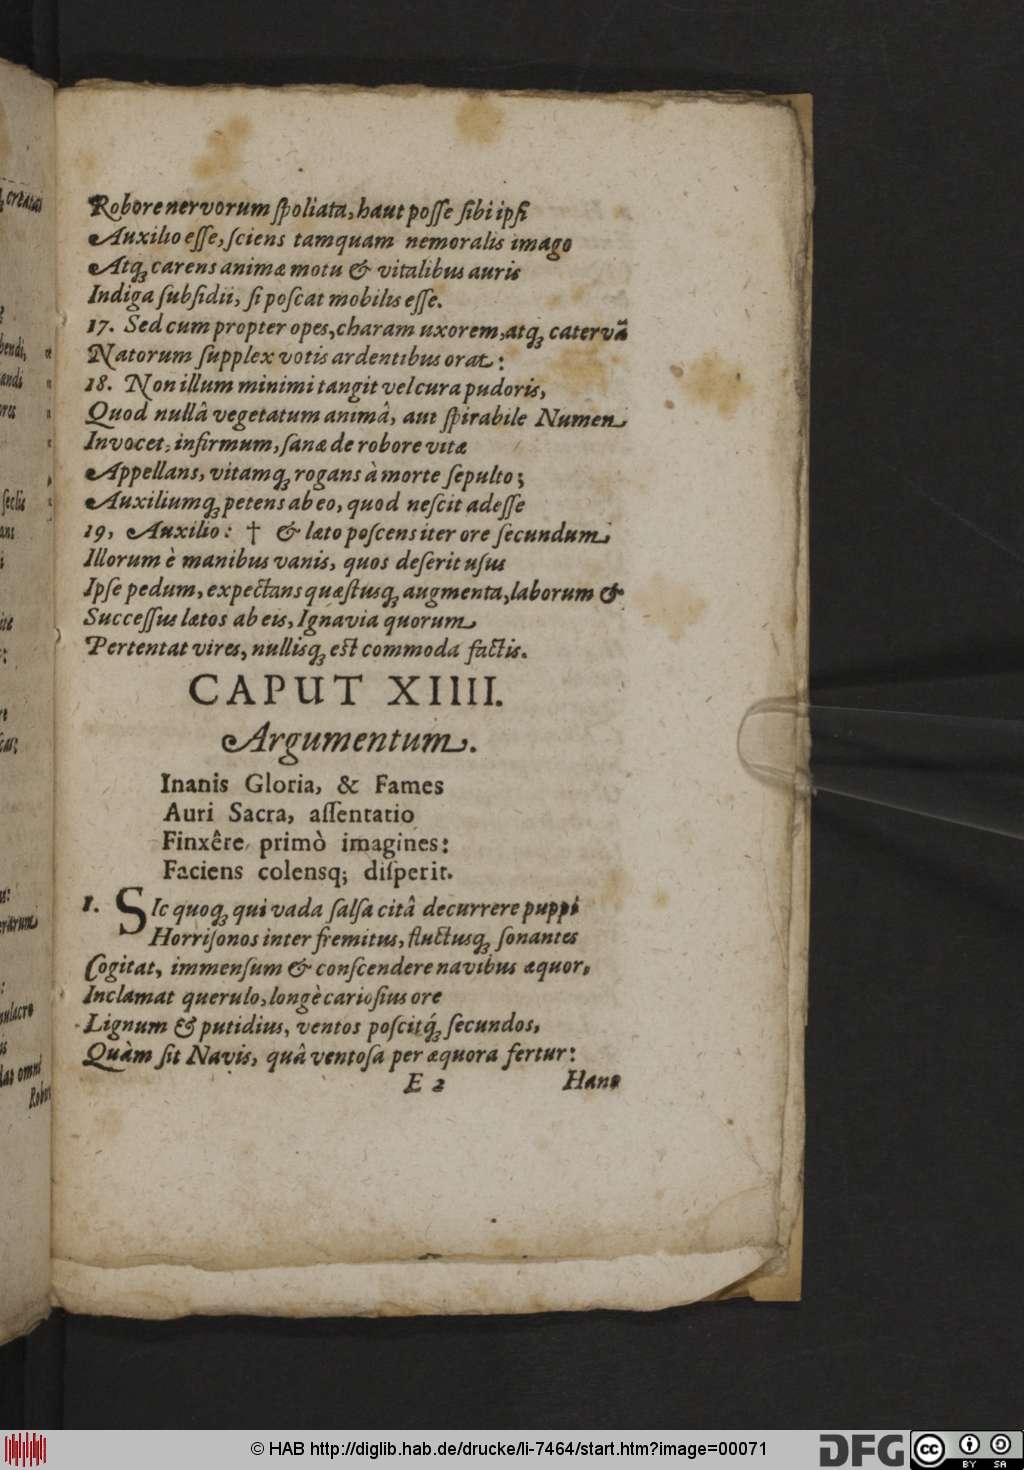 Robore nervorum ſpoliata, haut poſſe ſibi ipſi
Auxilio eſſe, ſciens tamquam nemoralis imago
Atqꝫ carens animæ motu & vitalibus auris
Indiga ſubſidii, ſi poſcat mobilis eſſe.
17. Sed cum propter opes, charam uxorem, atqꝫ catervã
Natorum ſupplex votis ardentibus orat:
18. Non illum minimi tangit vel cura pudoris,
Quod nullâ vegetatum animâ, aut ſpirabile Numen
Invocet, infirmum, ſanæ de robore vitæ
Appellans, vitamqꝫ rogans à morte ſepulto;
Auxiliumqꝫ petens ab eo, quod neſcit adeſſe
19, Auxilio: † & læto poſcens iter ore ſecundum
Illorum è manibus vanis, quos deſerit uſus
Ipſe pedum, expectans quæſtusqꝫ augmenta, laborum &
Succeſſus lætos ab eis, Ignavia quorum
Pertentat vires, nullisqꝫ eſt commoda factis.
CAPUT XIIII.
Argumentum.
Inanis Gloria, & Fames
Auri Sacra, aſſentatio
Finxêre primò imagines:
Faciens colensq; diſperit.
1. SIc quoqꝫ qui vada ſalſa citâ decurrere puppi
Horriſonos inter fremitus, fluctusqꝫ ſonantes
Cogitat, immenſum & conſcendere navibus æquor,
Inclamat querulo, longè carioſius ore
Lignum & putidius, ventos poſcitq́ꝫ ſecundos,
Quàm ſit Navis, quâ ventoſa per æquora fertur:
E 2 Hanc
creatai
bendi,
andi
ores
ſeclis
ans
ulacro
omni
Robore
© HAB http://diglib.hab.de/drucke/li-7464/start.htm?image=00071
DFG
cc
BY SA